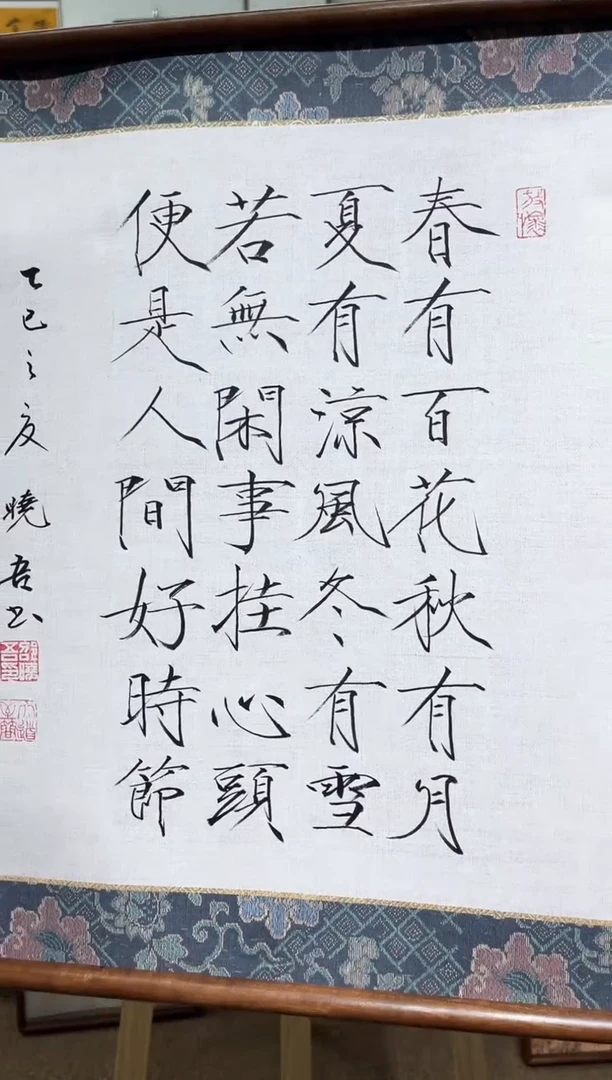 春有百花秋有月
夏有涼風冬有雪
若無閑事挂心頭
便是人間好時節
乙巳之夏 曉吾书